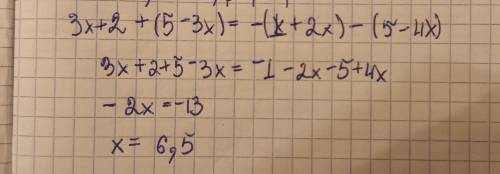 3x+2+(5-3x)=-(1+2x)-(5-4x)
3x+2+5-3x=-1-2x-5+4x
-2x=-13
x=6,5